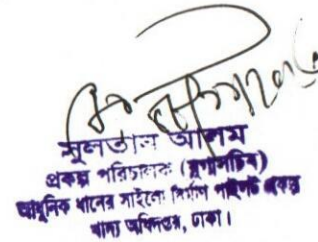 সুলতান আলম
প্রকল্প পরিচালক (যুগ্মসচিব)
আধুনিক ধানের সাইলো নির্মাণ পাইলট প্রকল্প
খাদ্য অধিদপ্তর, ঢাকা।